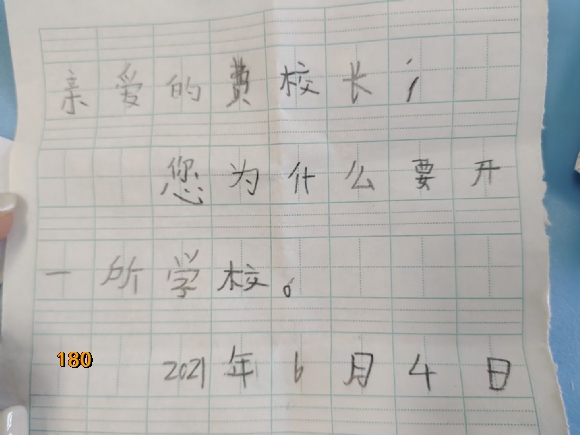 亲爱的费校长：
您为什么要开
一所学校。
180
2021年6月4日